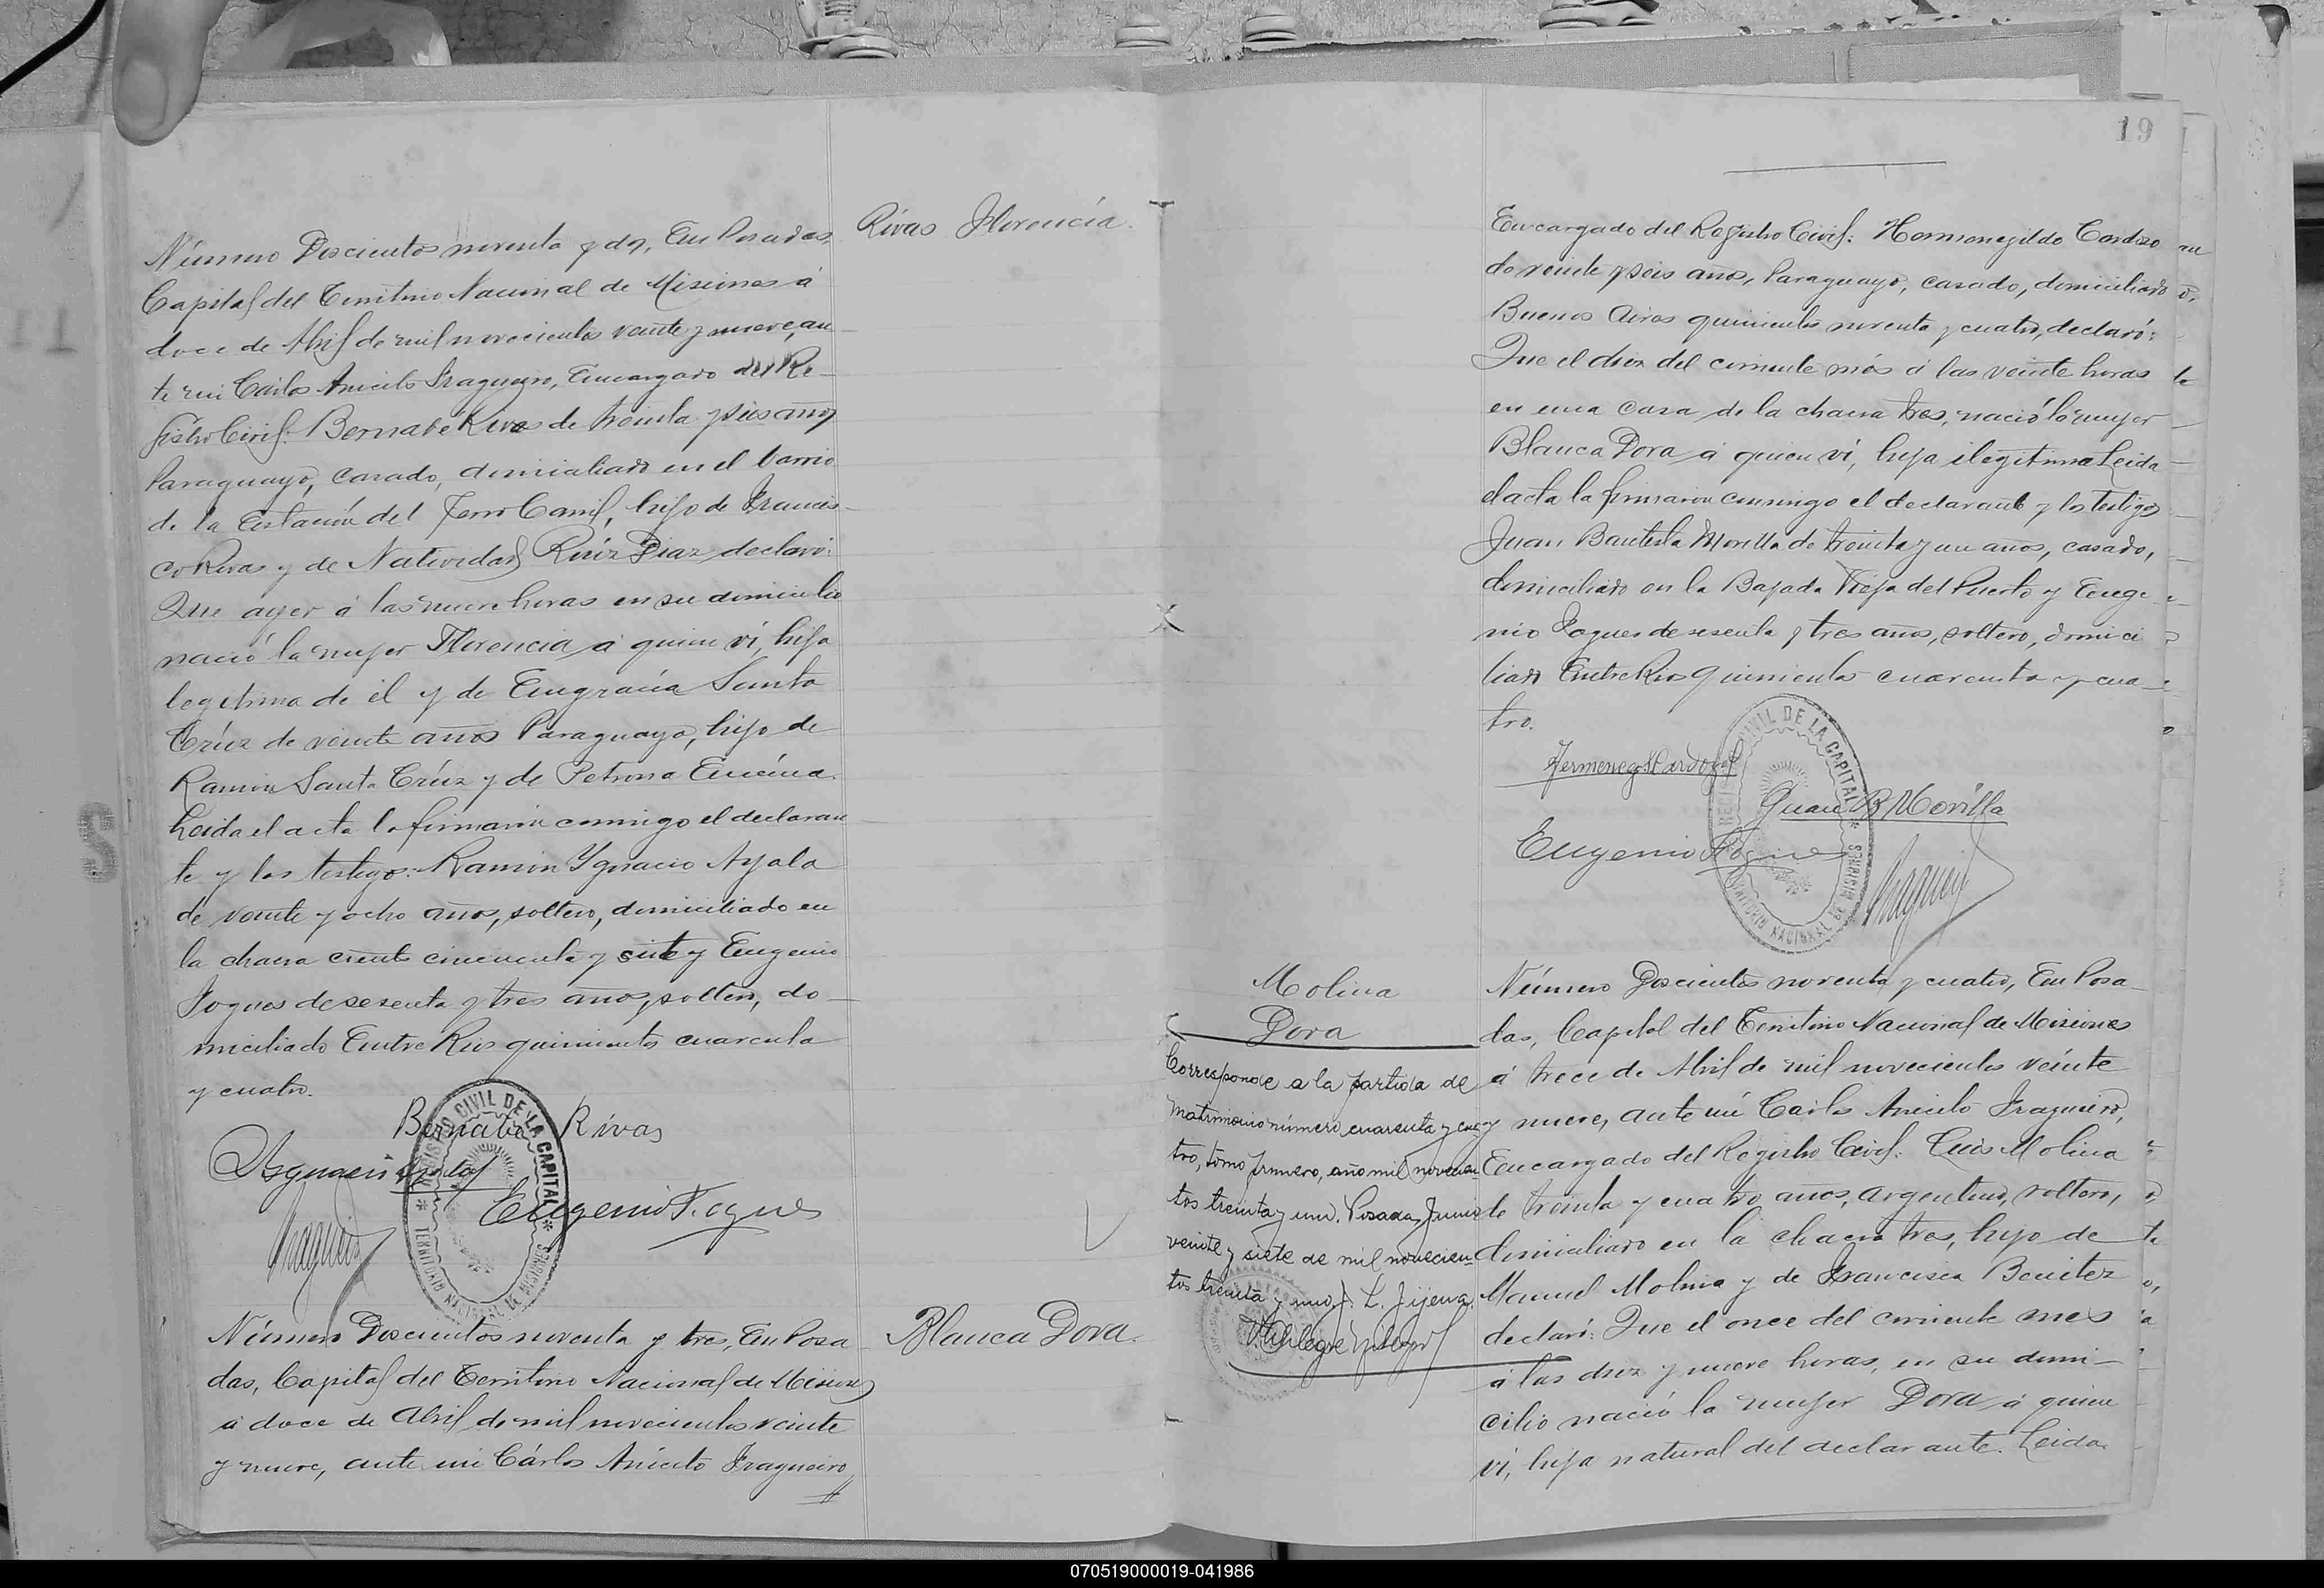 Rivas Florencia.
Número Doscientos noventa y dos, En Posadas,
Capital del Territorio Nacional de Misiones á
doce de Abril de mil novecientos veinte y nueve, an
te mi Carlos Aniceto Fragueiro, Encargado del Re-
gistro Civil: Bernabé Rivas de treinta y seis años
Paraguayo, casado, domiciliado en el barrio
de la Estación del Ferro Carril, hijo de Francis-
co Rivas y de Natividad Ruíz Diaz declaró:
Que ayer á las nueve horas en su domicilio
nació la mujer Florencia á quien ví, hija
legítima de él y de Engracia Santa
Crúz de veinte años Paraguaya, hija de
Ramón Santa Crúz y de Petrona Encina.
Leida el acta la firmaron conmigo el declaran
te y los testigos: Ramón Ygnacio Ayala
de veinte y ocho años, soltero, domiciliado en
la chacra ciento cincuenta y siete y Eugenio
Fogues de sesenta y tres años, soltero, do-
miciliado Entre Rios quinientos cuarenta
y cuatro.
Bernabe Rivas
Eugenio Fogues
REGISTRO CIVIL DE LA CAPITAL
TERRITORIO NACIONAL DE MISIONES
Blanca Dora.
Número Doscientos noventa y tres, En Posa
das, Capital del Territorio Nacional de Misiones
á doce de Abril de mil novecientos veinte
y nueve, ante mi Cárlos Aniceto Fragueiro,
19
Encargado del Registro Civil: Hermenegildo Cardozo
de veinte y seis años, Paraguayo, casado, domiciliado
Buenos Aires quinientos noventa y cuatro, declaró:
Que el diez del corriente més á las veinte horas
en una casa de la chacra tres, nació la mujer
Blanca Dora á quien ví, hija ilegítima Leida
el acta la firmaron conmigo el declarante y los testigos
Juan Bautista Morilla de treinta y un años, casado,
domiciliado en la Bajada Vieja del Puerto y Euge-
nio Fogues de sesenta y tres años, soltero, domici
liado Entre Rios quinientos cuarenta y cua-
tro.
Juan B Morilla
Eugenio Fogues
REGISTRO CIVIL DE LA CAPITAL
TERRITORIO NACIONAL DE MISIONES
Molina
Dora
Corresponde a la partida de
matrimonio número cuarenta y cua
tro, tomo primero, año mil novecien
tos treinta y uno. Posadas, Junio
veinte y siete de mil novecien-
tos treinta y uno. J. L. Jijena.
Número Doscientos noventa y cuatro, En Posa-
das, Capital del Territorio Nacional de Misiones
á trece de Abril de mil novecientos veinte
y nueve, ante mi Carlos Aniceto Fragueiro,
Encargado del Registro Civil: Luis Molina
de treinta y cuatro años, argentino, soltero,
domiciliado en la chacra tres, hijo de
Manuel Molina y de Francisca Benitez
declaró: Que el once del corriente mes
á las diez y nueve horas, en su domi-
cilio nació la mujer Dora á quien
ví, hija natural del declarante. Leida
070519000019-041986